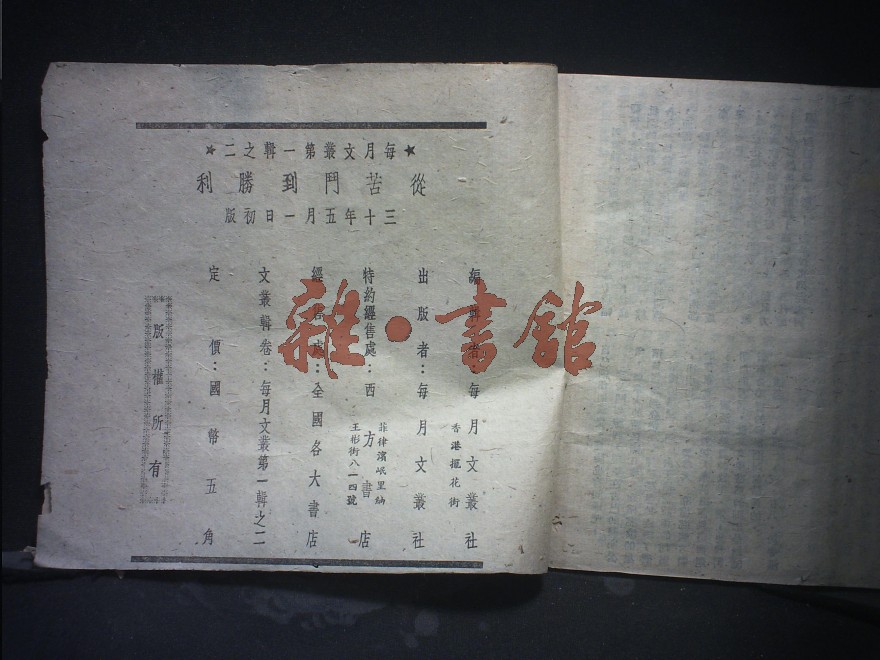 ★每月文叢第一輯之二★
從苦鬥到勝利
三十年五月一日初版
編輯者：每月文叢社
香港擺花街
出版者：每月文叢社
特約經售處：西方書店
菲律濱岷里拉
王彬街八一四號
經售處：全國各大書店
文叢輯卷：每月文叢第一輯之二
定價：國幣五角
版權所有
雜·書館